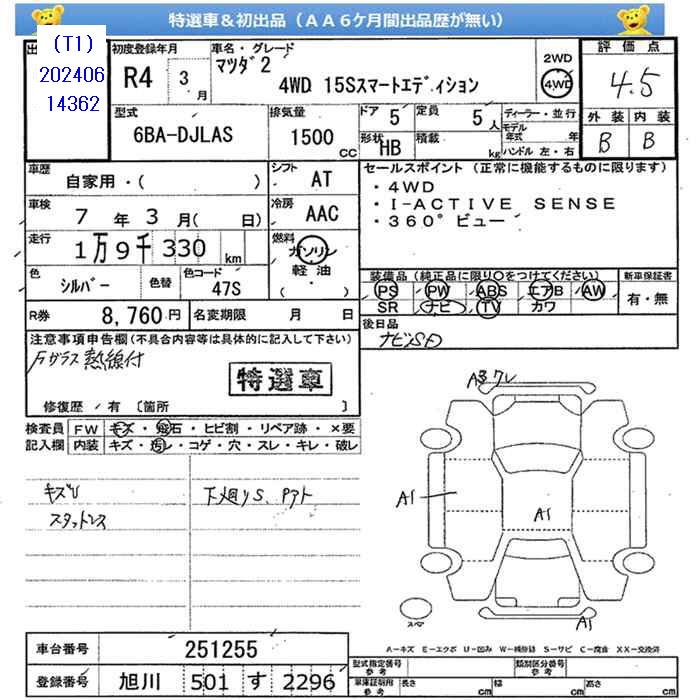 特選車＆初出品（ＡＡ６ケ月間出品歴が無い）
(T1)
202406
14362
初度登録年月
R4 3月
車名・グレード
マツダ2
4WD 15Sスマートエディション
2WD
4WD
評価点
4.5
外装 内装
B B
型式
6BA-DJLAS
排気量
1500 CC
ドア 5
定員 5人
形状 HB
積載 kg
ディーラー・並行
モデル年式 年
ハンドル 左・右
車歴
自家用・( )
シフト AT
車検
7年3月( 日)
冷房 AAC
走行
1万9千330km
燃料
ガソリン
軽油
・( )
色
シルバー
色替
色コード
47S
R券 8,760円
名変期限 月 日
セールスポイント（正常に機能するものに限ります）
・4WD
・I-ACTIVE SENSE
・360°ビュー
装備品（純正品に限り○をつけてください）
PS PW ABS エアB AW
SR ナビ TV カワ
新車保証書
有・無
後日品
ナビSD
注意事項申告欄(不具合内容等は具体的に記入して下さい)
Fガラス熱線付
特選車
修復歴／有〔箇所 〕
検査員記入欄
FW キズ・飛石・ヒビ割・リペア跡・×要
内装 キズ・汚レ・コゲ・穴・スレ・キレ・破レ
キズU
スタットレス
下廻りS、Pアト
A1
A1
A1
スペア
A－キズ E－エクボ U－凹み W－補修跡 S－サビ C－腐食 XX－交換済
車台番号 251255
登録番号 旭川 501 す 2296
型式指定番号 参考
類別区分番号 参考
車庫証明用 参考
長さ cm
幅 cm
高さ cm